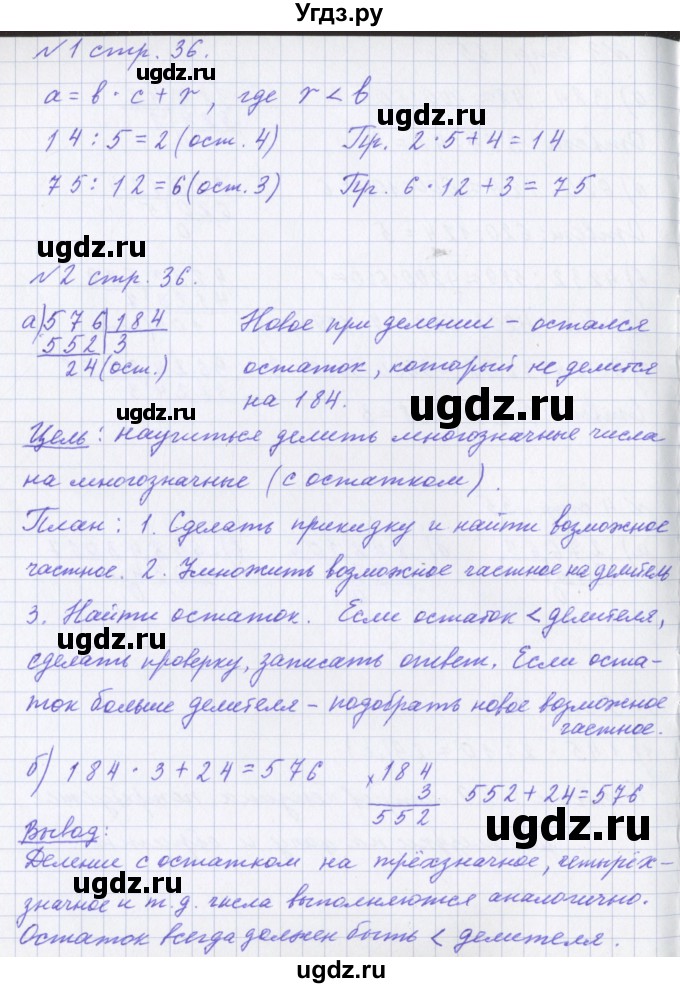 Угдз.ру
№1 стр. 36.
ugdz.ru
a = b · c + r, где r < b
ugdz.ru
14 : 5 = 2 (ост. 4) Пр. 2 · 5 + 4 = 14
75 : 12 = 6 (ост. 3) Пр. 6 · 12 + 3 = 75
ugdz.ru
№2 стр. 36.
а) 576 | 184 Новое при делении – остался
552 | 3 остаток, который не делится
24 (ост.) на 184.
ugdz.ru
ugdz.ru
Цель: научиться делить многозначные числа
на многозначные (с остатком).
План: 1. Сделать прикидку и найти возможное
частное. 2. Умножить возможное частное на делитель
3. Найти остаток. Если остаток < делителя,
ugdz.ru
сделать проверку, записать ответ. Если оста-
ток больше делителя – подобрать новое возможное
частное.
ugdz.ru
б) 184 · 3 + 24 = 576 × 184
3 552 + 24 = 576
552
ugdz.ru
Вывод:
Деление с остатком на трёхзначное, четырёх-
ugdz.ru
значное и т. д. числа выполняются аналогично.
Остаток всегда должен быть < делителя.
ugdz.ru